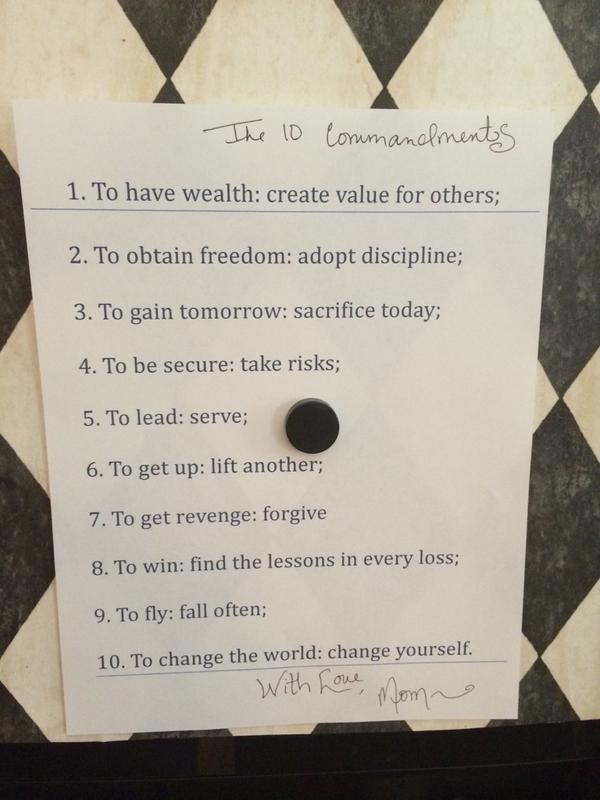 The 10 Commandments
1. To have wealth: create value for others;
2. To obtain freedom: adopt discipline;
3. To gain tomorrow: sacrifice today;
4. To be secure: take risks;
5. To lead: serve;
6. To get up: lift another;
7. To get revenge: forgive
8. To win: find the lessons in every loss;
9. To fly: fall often;
10. To change the world: change yourself.
With Love,
Mom